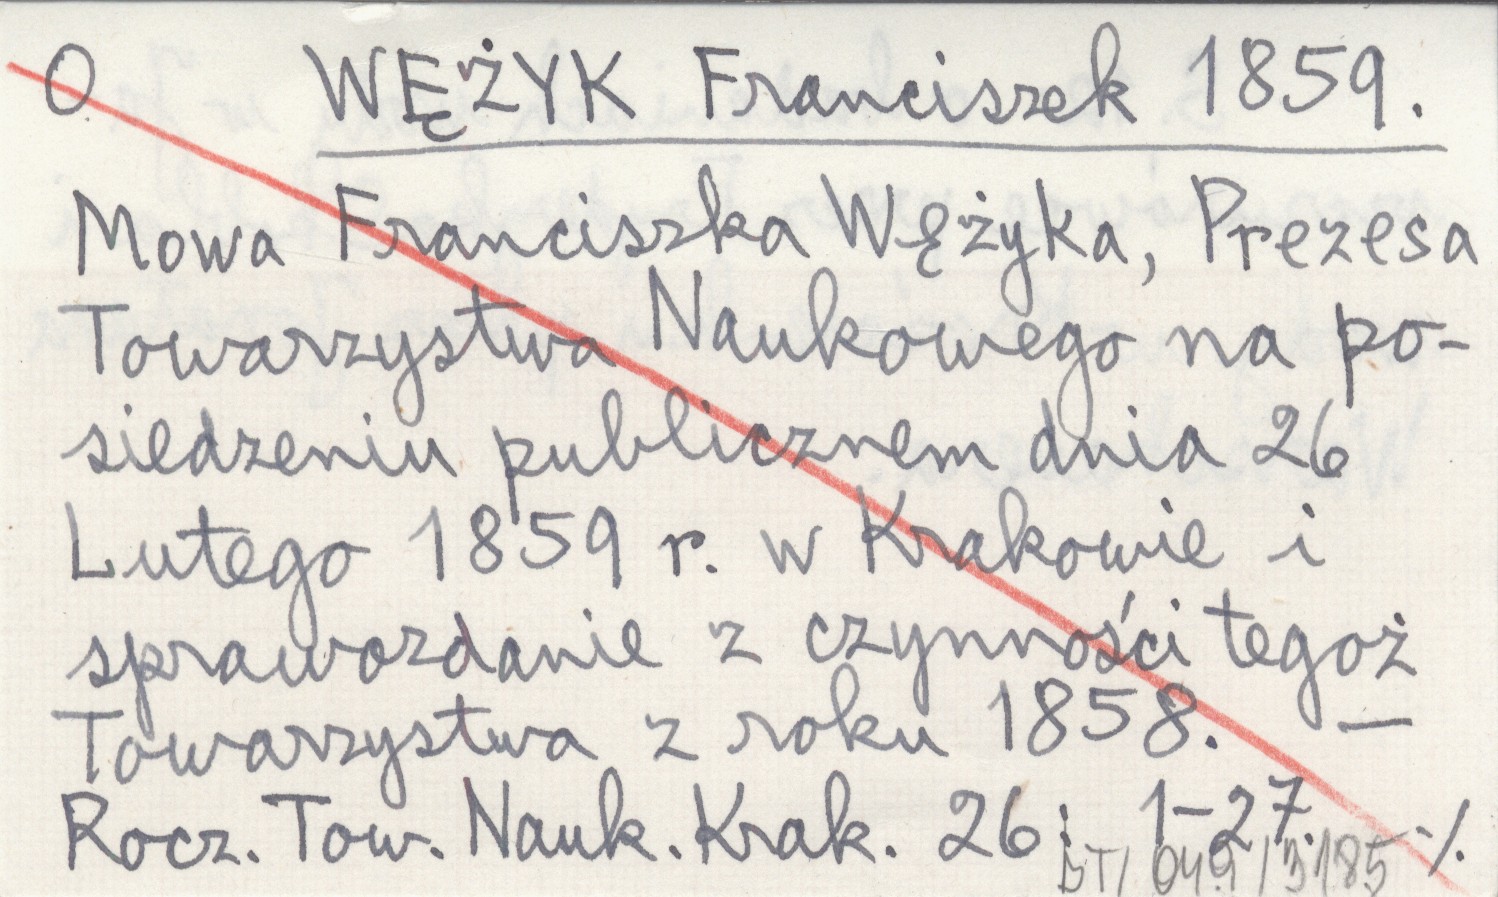 O WĘŻYK Franciszek 1859.
Mowa Franciszka Wężyka, Prezesa
Towarzystwa Naukowego na po-
siedzeniu publicznem dnia 26
Lutego 1859 r. w Krakowie i
sprawozdanie z czynności tegoż
Towarzystwa z roku 1858. —
Rocz. Tow. Nauk. Krak. 26: 1-27. ./.
DT/ 049/3185